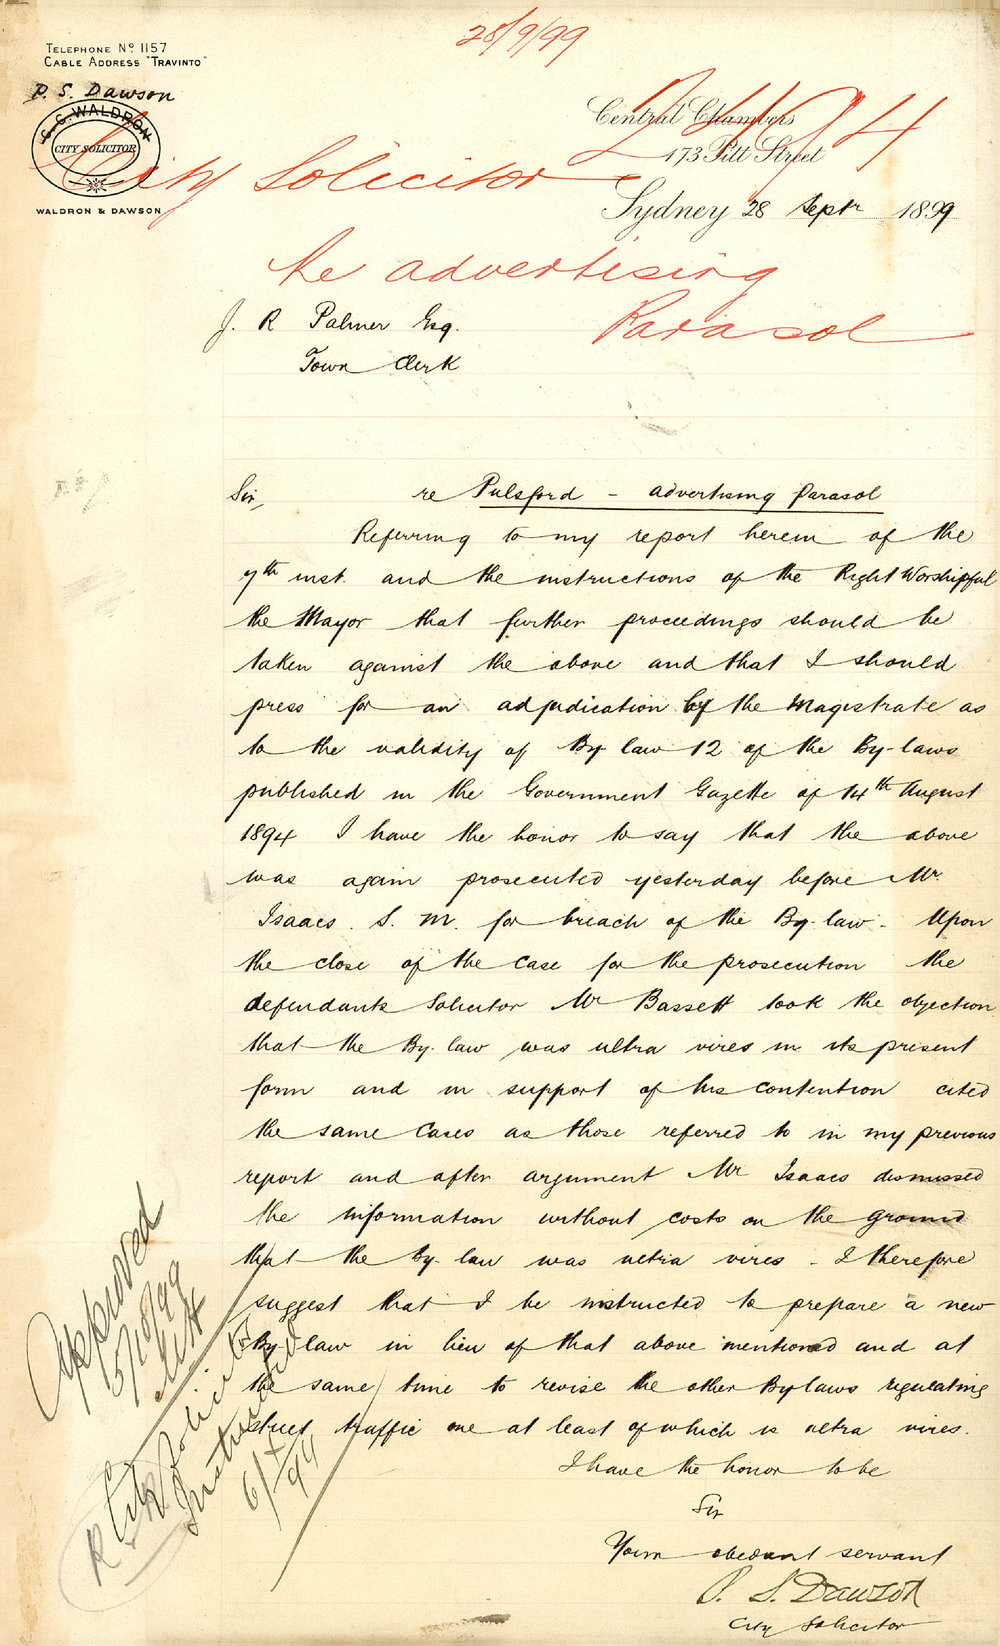 28/9/99
TELEPHONE No 1157
CABLE ADDRESS "TRAVINTO"
P. S. Dawson
WALDRON
CITY SOLICITOR
WALDRON & DAWSON
Central Chambers
173 Pitt Street
Sydney 28 Septr 1899
City Solicitor
re advertising
Parasol
J. R Palmer Esq.
Town Clerk
Sir, re Pulsford - advertising parasol
Referring to my report herein of the
7th inst. and the instructions of the Right Worshipful
the Mayor that further proceedings should be
taken against the above and that I should
press for an adjudication by the Magistrate as
to the validity of By law 12 of the By-laws
published in the Government Gazette of 14th August
1894 I have the honor to say that the above
was again prosecuted yesterday before Mr
Isaacs. S. M. for breach of the By-law. Upon
the close of the case for the prosecution the
defendants Solicitor Mr Bassett took the objection
that the By-law was ultra vires in its present
form and in support of his contention cited
the same cases as those referred to in my previous
report and after argument Mr Isaacs dismissed
the information without costs on the ground
that the by-law was ultra vires - I therefore
suggest that I be instructed to prepare a new
By-law in lieu of that above mentioned and at
the same time to revise the other Bylaws regulating
street traffic one at least of which is ultra vires.
I have the honor to be
Sir
Your obedient servant
P. S. Dawson
City Solicitor
Approved
5/10/99
City Solicitor
Instructed
6/X/99